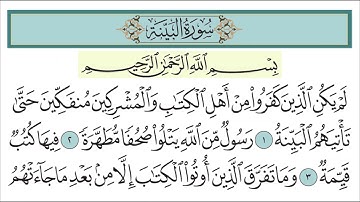 سُورَةُ البَيِّنَةِ
بِسْمِ اللَّهِ الرَّحْمَٰنِ الرَّحِيمِ
لَمْ يَكُنِ الَّذِينَ كَفَرُوا مِنْ أَهْلِ الْكِتَابِ وَالْمُشْرِكِينَ مُنفَكِّينَ حَتَّىٰ
تَأْتِيَهُمُ الْبَيِّنَةُ ١ رَسُولٌ مِّنَ اللَّهِ يَتْلُوا صُحُفًا مُّطَهَّرَةً ٢ فِيهَا كُتُبٌ
قَيِّمَةٌ ٣ وَمَا تَفَرَّقَ الَّذِينَ أُوتُوا الْكِتَابَ إِلَّا مِنْ بَعْدِ مَا جَاءَتْهُمُ